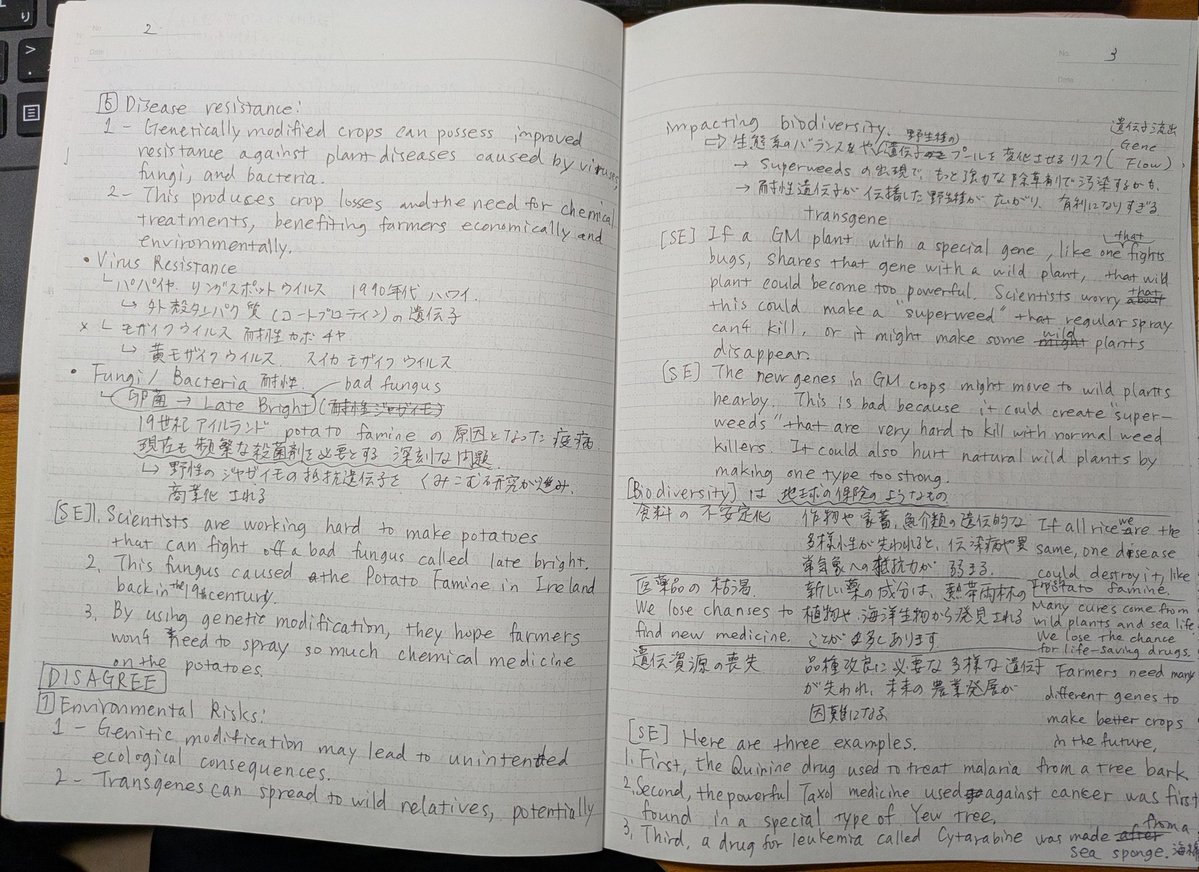 No. 2
Date
5 Disease resistance:
1 - Genetically modified crops can possess improved
resistance against plant diseases caused by viruses,
fungi, and bacteria.
2 - This produces crop losses and the need for chemical
treatments, benefiting farmers economically and
environmentally.
• Virus Resistance
└ パパイヤ リングスポットウイルス 1990年代 ハワイ.
↳ 外殻タンパク質 (コートプロティン)の遺伝子
× └ モザイクウイルス 耐性カボチャ
↳ 黄モザイクウイルス スイカモザイクウイルス
• Fungi / Bacteria 耐性. bad fungus
卵菌 → Late Bright (耐性ジャガイモ)
19世紀アイルランド potato famine の原因となった疫病
現在も頻繁な殺菌剤を必要とする 深刻な問題.
↳ 野性のジャガイモの抵抗遺伝子を くみこむ研究が進み.
商業化される
[SE] 1. Scientists are working hard to make potatoes
that can fight off a bad fungus called late bright.
2. This fungus caused a the Potato Famine in Ireland
back in the 19th century.
3. By using genetic modification, they hope farmers
won't need to spray so much chemical medicine
on the potatoes.
DISAGREE
1 Environmental Risks:
1 - Genitic modification may lead to unintended
ecological consequences.
2 - Transgenes can spread to wild relatives, potentially
No. 3
Date
impacting biodiversity. 野生種の 遺伝子流出
⇒ 生態系のバランスをや 遺伝子 プールを変化させるリスク( Gene Flow)
→ Superweeds の出現で、もっと強力な除草剤で汚染するかも、
→ 耐性遺伝子が伝播した野生種が広がり、有利になりすぎる
transgene
[SE] If a GM plant with a special gene, like one that fights
bugs, shares that gene with a wild plant, that wild
plant could become too powerful. Scientists worry about that
this could make a "superweed" that regular spray
can't kill, or it might make some might wild plants
disappear.
[SE] The new genes in GM crops might move to wild plants
nearby. This is bad because it could create "super-
weeds" that are very hard to kill with normal weed
killers. It could also hurt natural wild plants by
making one type too strong.
[Biodiversity] は 地球の保険のようなもの
食料の不安定化 作物や家畜、魚介類の遺伝的な If all rice we are the
多様小生が失われると、伝染病や異 same, one disease
常気象への抵抗力が 弱まる. could destroy it, like
potato famine.
医薬品の枯渇. 新しい薬の成分は、熱帯雨林の Many cures come from
We lose chanses to 植物や、海洋生物から発見される wild plants and sea life.
find new medicine. ことが多くあります We lose the chance
for life-saving drugs.
遺伝資源の喪失 品種改良に必要な多様な遺伝子 Farmers need many
が失われ、未来の農業発展が different genes to
困難になる make better crops
in the future,
[SE] Here are three examples.
1. First, the Quinine drug used to treat malaria from a tree bark.
2. Second, the powerful Taxol medicine used against cancer was first
found in a special type of Yew tree,
3, Third, a drug for leukemia called Cytarabine was made after from a
sea sponge.